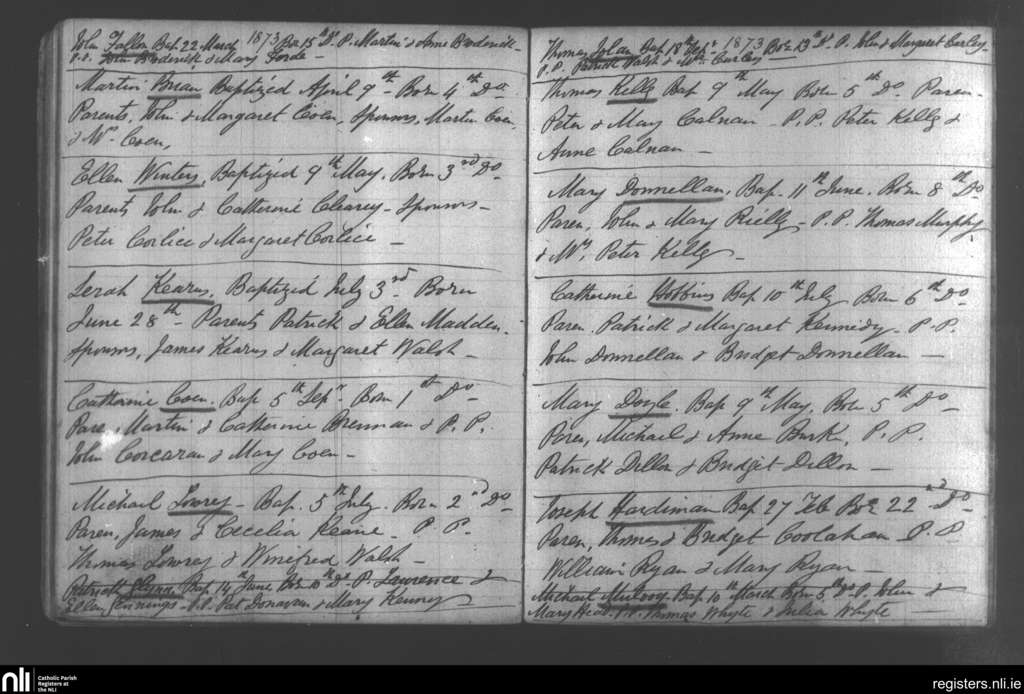 John Fallon Bap. 22 March 1873 Bo. 15th Do. P. Martin & Anne Broderick
P.P. John Broderick & Mary Forde
Martin Brian Baptized April 9th Born 4th Do
Parents, John & Margaret Coen, Sponsors, Martin Coen,
& Mrs Coen,
Ellen Winters, Baptized 9th May, Born 3rd Do
Parents John & Catherine Clearey - Sponsors -
Peter Corlice & Margaret Corlice -
Serah Kearns, Baptized July 3rd Born
June 28th - Parents Patrick & Ellen Madden.
Sponsors, James Kearns & Margaret Walsh -
Catherine Coen. Bap 5th Sepr Born 1st Do
Pare, Martin & Catherine Brennan & P.P.
John Corcaran & Mary Coen -
Michael Lowrey - Bap. 5th July. Born 2nd Do
Paren, James & Cecelia Keane. P P.
Thomas Lowrey & Winefred Walsh
Patrick Glynn, Bap 14th June Bo. 10th Do P. Lawrence &
Ellen Jennings - P.P. Pat Donavan & Mary Kenney
Thomas Bap 18th Sepr 1873 Bo. 13th Do P. John & Margaret Curley
P.P. Patrick Walsh & Curley
Thomas Kelly Bap 9th May Born 5th Do. Paren-
Peter & Mary Calnan - P.P. Peter Kelly &
Anne Calnan -
Mary Donnellan, Bap. 11th June. Born 8th Do
Paren, John & Mary Rielly - P.P. Thomas Murphy
& Mrs, Peter Kelly -
Catherine Hobbins Bap 10th July Born 6th Do
Paren. Patrick & Margaret Kennedy - P.P.
John Donnellan & Bridget Donnellan -
Mary Doyle. Bap 9th May, Born 5th Do
Paren, Michael & Anne Burke, P.P.
Patrick Dillon & Bridget Dillon -
Joseph Hardiman Bap 27 Feb Bo. 22nd Do
Paren, Thomas & Bridget Coolahan P.P
William Ryan & Mary Ryan -
Michael Mulrooy Bap 10th March Born 5th Do P. John &
Mary Head. P.P. Thomas Whyte & Julia Whyte
nli Catholic Parish
Registers at
the NLI
registers.nli.ie